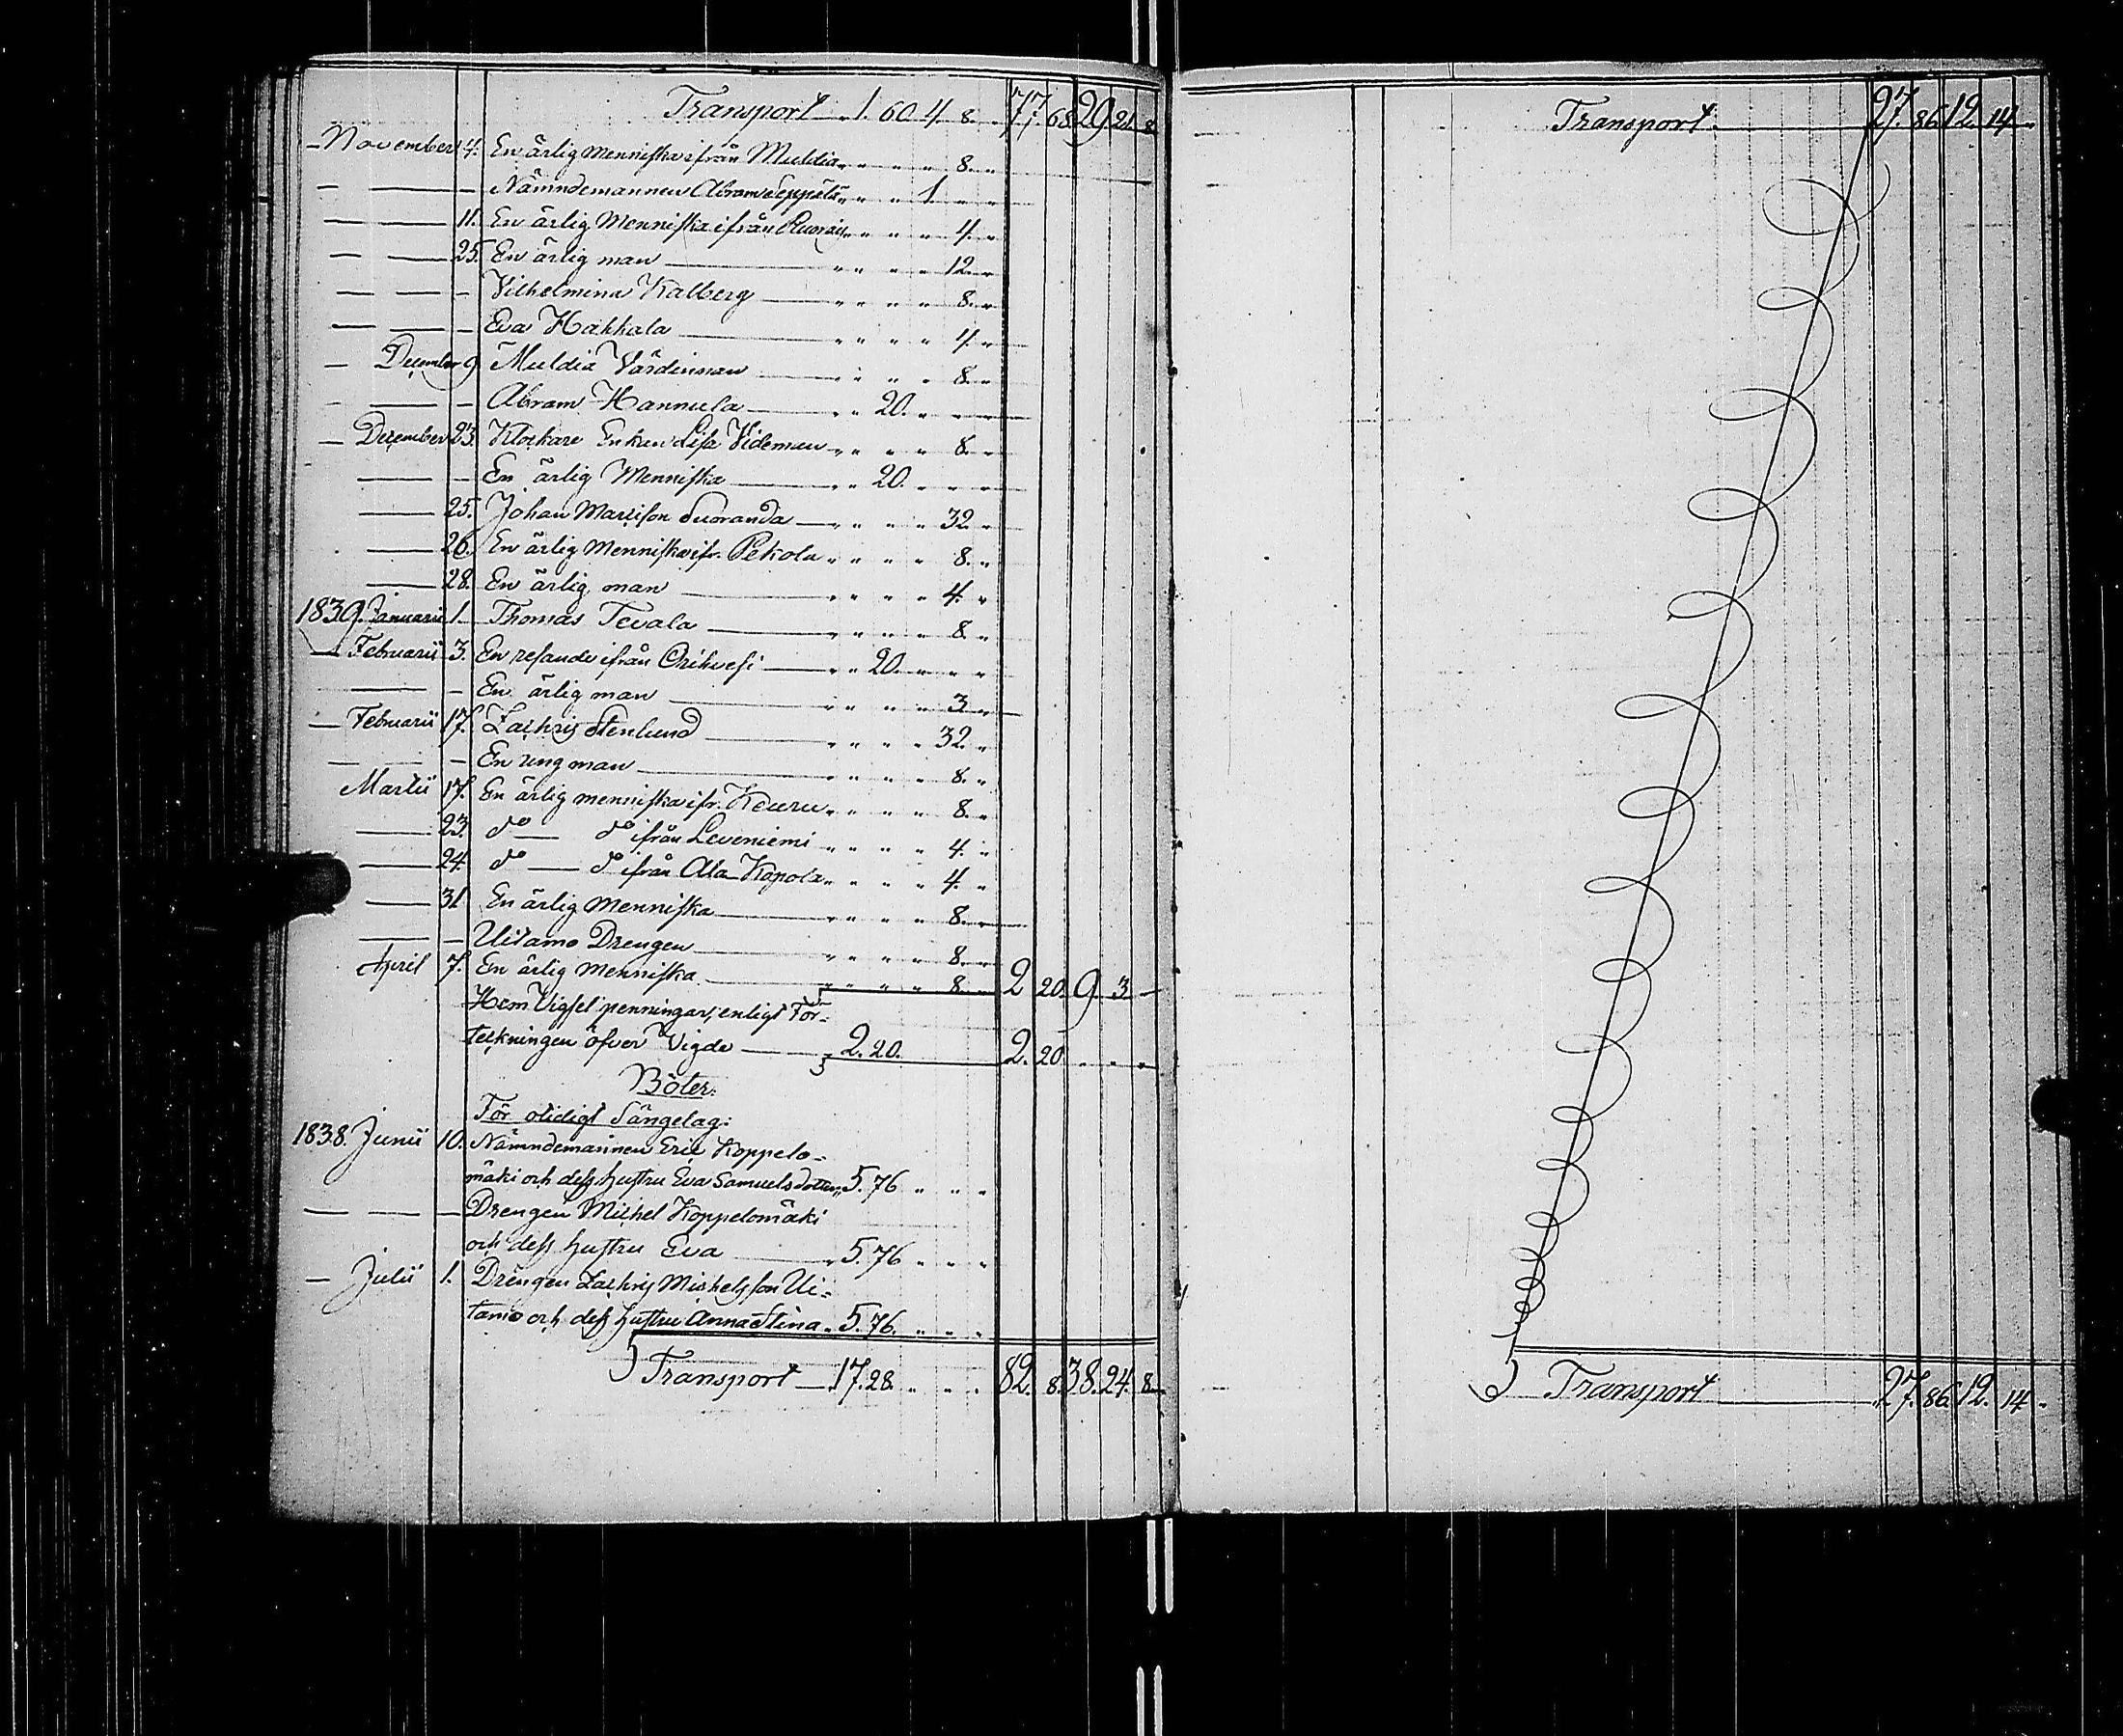 Transport 1. 60. 4. 8. 77. 68. 29. 21. 8.
November 4. En ärlig Menniska ifrån Muldia " " " " 8. "
— — — Nämndemannen Abram Seppälä " " " 1 " "
— 11. En ärlig Menniska ifrån " " " " 4. "
— — 25. En ärlig man " " " " 12. "
— — — Vilhelmina Kalberg " " " " 8. "
— — — Eva Hakkala " " " " 4. "
— December 9 Muldia Värdinnan " " " " 8. "
— — Abram Hannula " " 20. " " "
— December 23. Klockare Enkan Lisa Videman " " " " 8. "
— — En ärlig Menniska " " 20. " " "
— 25. Johan Mattsson Suoranda " " " " 32 "
— 26. En ärlig Menniska ifr. Pekola " " " " 8. "
— 28. En ärlig man " " " " 4. "
1839. Januarii 1. Thomas Tevala " " " " 8. "
— Februarii 3. En resande ifrån Orihvesi " " 20. " " "
— — En ärlig man " " " " 3 "
— Februarii 17. Zachris Stenlund " " " " 32. "
— — — En ung man " " " " 8. "
Martii 17. En ärlig menniska ifr. Keuru " " " " 8. "
— 23. do — do ifrån Leveniemi " " " " 4. "
— 24. do — do ifrån Ala Kapola " " " " 4. "
— 31 En ärlig Menniska " " " " 8. "
— — Uitamo Drengen " " " " 8. "
April 7. En ärlig Menniska " " " " 8. " 2 20. 9 3 —
Hem Vigsel penningar, enligt För-
teckningen öfver Vigde — 2. 20. 2. 20. " " "
Böter:
För otidigt Sängelag:
1838. Junii 10. Nämndemannen Eric Koppelo-
mäki och dess hustru Eva Samuelsdotter 5. 76 " " "
— — — Drengen Michel Koppelomäki
och dess hustru Eva 5. 76 " " "
— Julii 1. Drengen Zachris Michelsson Ui-
tamo och dess hustru Anna Stina 5. 76. " " "
Transport — 17. 28. " " " 82. 8. 38. 24. 8.
Transport. 27. 86. 12. 14 —
Transport 27. 86. 12. 14 "